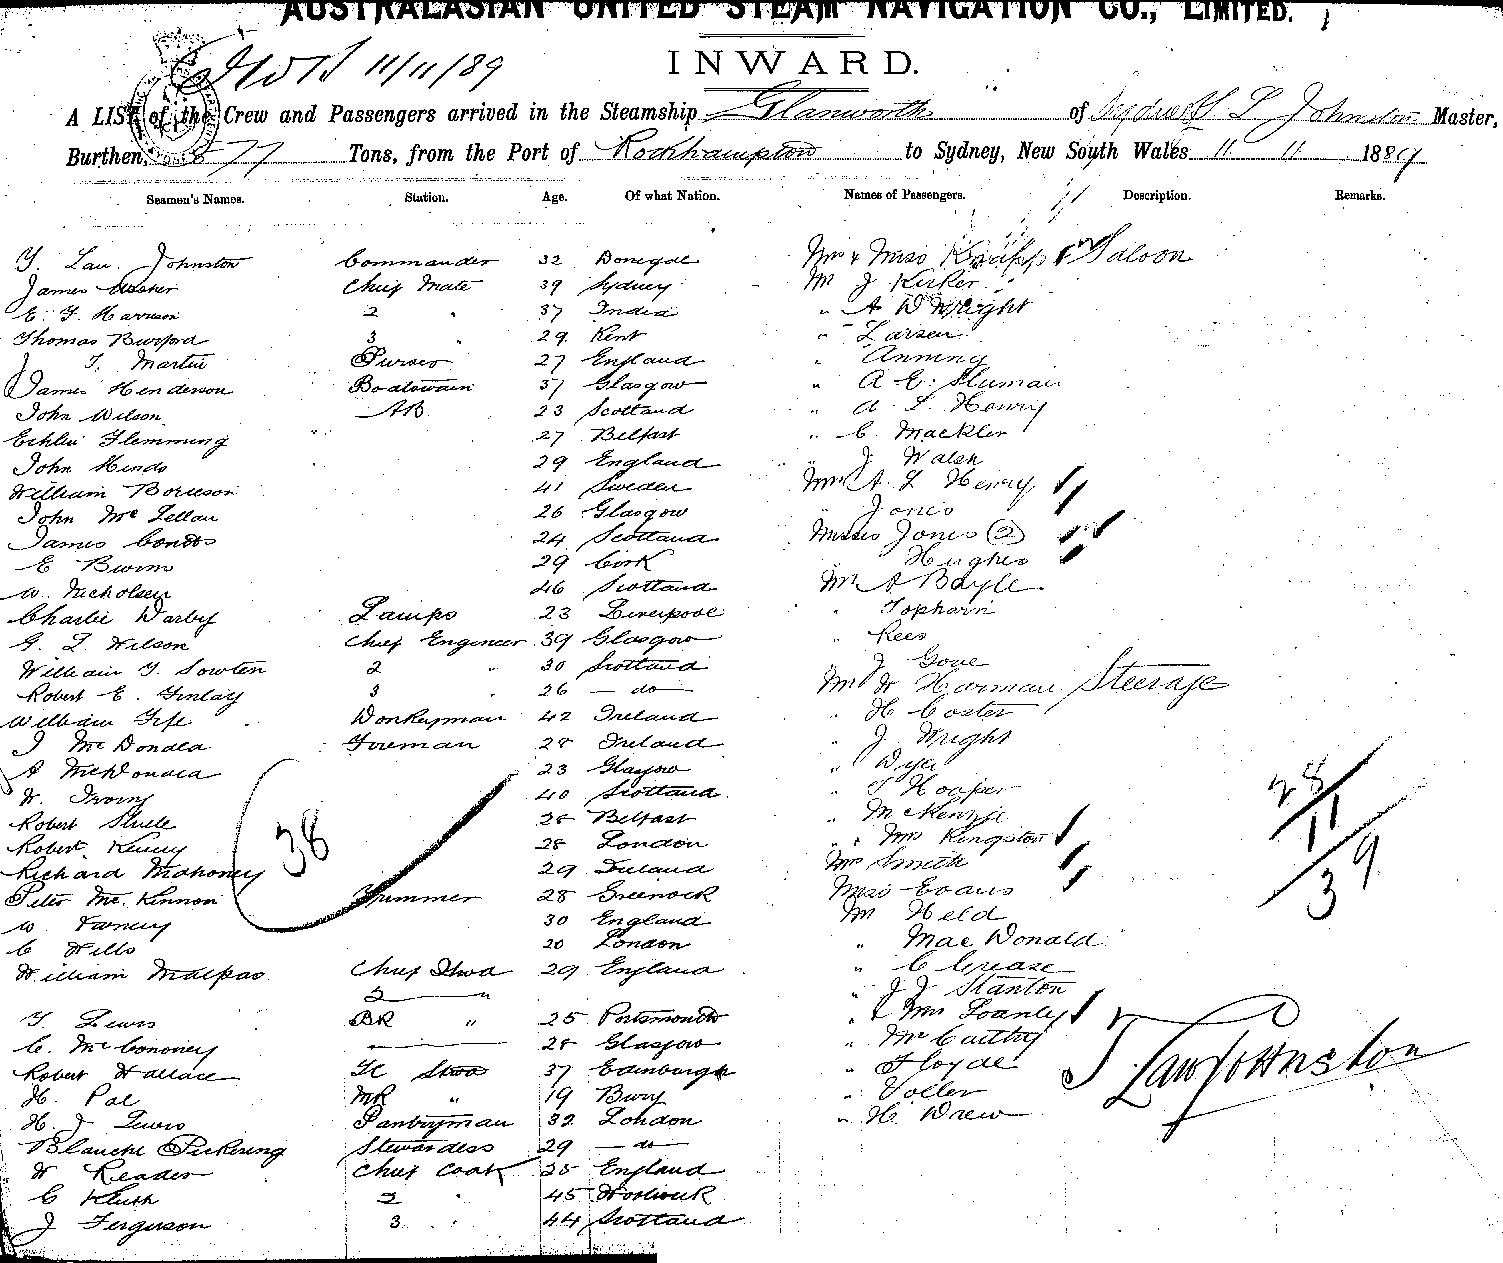 AUSTRALASIAN UNITED STEAM NAVIGATION CO., LIMITED.
INWARD.
11/11/89
A LIST of the Crew and Passengers arrived in the Steamship Glanworth of L Johnston Master,
Burthen, 577 Tons, from the Port of Rockhampton to Sydney, New South Wales 11 11 1889
Seamen's Names. Station. Age. Of what Nation. Names of Passengers. Description. Remarks.
T. Law Johnston Commander 32 Donegal Mr & Miss Knapp Saloon
James Chief Mate 39 Sydney Mr J Kirker
E. T. Harrison 2 " 37 India " A D Wright
Thomas Burford 3 " 29 Kent " Larsen
J T. Martin Purser 27 England " Anning
James Henderson Boatswain 37 Glasgow " A E.
John Wilson AB 23 Scotland " A L Henry
Flemming " 27 Belfast " C. Mackler
John Hinds 29 England " J Walsh
William 41 Sweden Mrs A L Henry
John McLellan 26 Glasgow " Jones
James 24 Scotland Misses Jones (2)
E 29 Cork Hughes
W. Nicholsen 46 Scotland Mr A Bayle
Charlie Darby Lamps 23 Liverpool "
G. L Wilson Chief Engineer 39 Glasgow " Rees
William T. Sowten 2 " 30 Scotland " J
Robert E. Finlay 3 " 26 — do — Mr W Harman Steerage
William Donkeyman 42 Ireland " H Coster
J McDonald Foreman 28 Ireland " J Wright
A McDonald 23 Glasgow " Dyer
W. Irving 40 Scotland " T Hooper
Robert 28 Belfast " McKenzie
Robert Kenny 28 London " " Mrs Kingston
Richard Mahoney 29 Ireland Mrs Smith
Peter McKinnon Trimmer 28 Greenock Miss Evans
W 30 England Mr Held
C Wills 20 London " MacDonald
William Malpas Chief Stwd 29 England " C Crease
2 — " " J J Stanton
T. Lewis BR " 25 Portsmouth " & Mrs
C. McCononey 28 Glasgow " McCarthy
Robert Wallace 37 Edinburgh " Floyde
H. Pal MR " 19 Bury " Voller
H. J Lewis Pantryman 32 London " H. Drew
Blanche Pickering Stewardess 29 — do —
W Reader Chief Cook 25 England
C 2 " 45
J Ferguson 3 " 44 Scotland
38
28
11
39
T Law Johnston